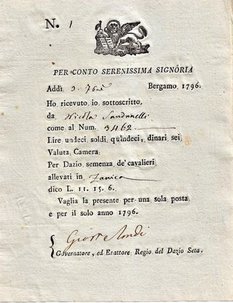 N. 1
PER CONTO SERENISSIMA SIGNORIA
Addì Bergamo, 1796.
Ho ricevuto io sottoscritto
da Nicola
come al Num. 31162
Lire undeci soldi quindeci, dinari sei
Valuta Camera.
Per Dazio semenza de' cavalieri
allevati in Zanica
dico L. 11. 15. 6.
Vaglia la presente per una sola posta
e per il solo anno 1796.
Governatore, ed Esattore Regio del Dazio Seta.